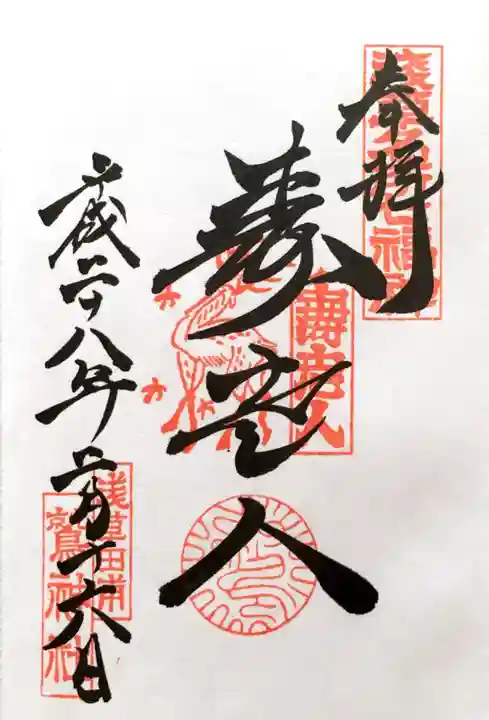 奉拝
淺草名所七福神
寿老人
壽老人
平成二十八年二月十六日
淺草田甫
鷲神社